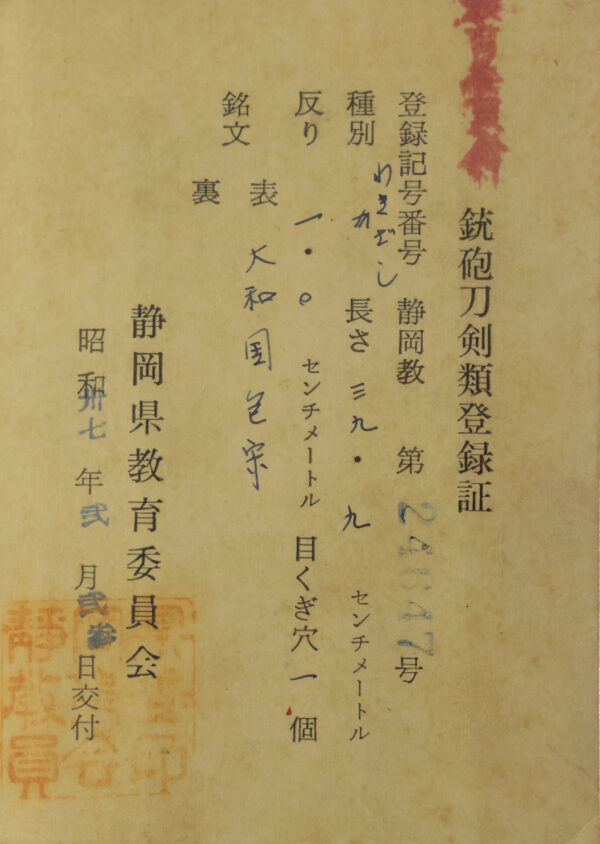 銃砲刀剣類登録証
登録記号番号 静岡教 第 号
種別 わきざし 長さ 三九・九 センチメートル
反り 一・〇 センチメートル 目くぎ穴 一 個
銘文 表 大和国包宗
裏
静岡県教育委員会
昭和卅七年弐月弐参日交付